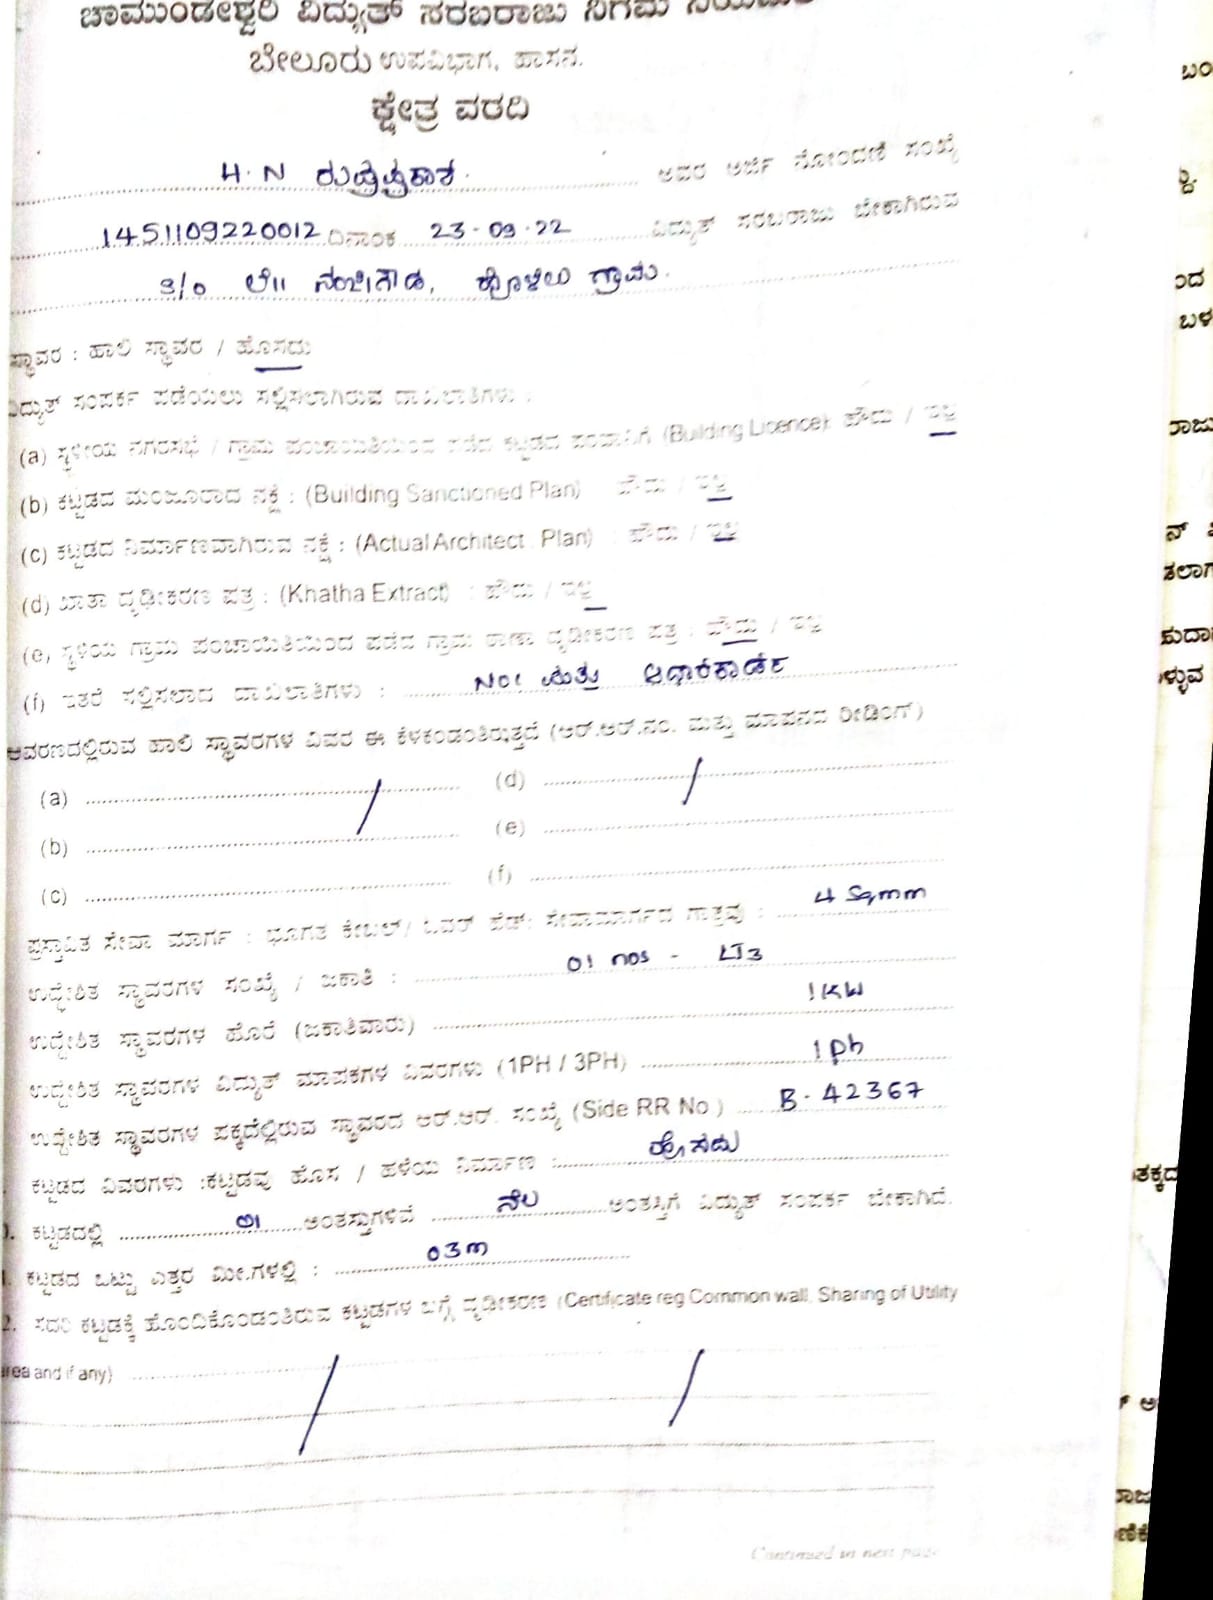 ಚಾಮುಂಡೇಶ್ವರಿ ವಿದ್ಯುತ್ ಸರಬರಾಜು ನಿಗಮ ನಿಯಮಿತ
ಬೇಲೂರು ಉಪವಿಭಾಗ, ಹಾಸನ.
ಕ್ಷೇತ್ರ ವರದಿ
H.N ರುಪ್ರಪ್ರಕಾಶ. ಅವರ ಅರ್ಜಿ ನೋಂದಣಿ ಸಂಖ್ಯೆ
1451109220012 ದಿನಾಂಕ 23-09-22 ವಿದ್ಯುತ್ ಸರಬರಾಜು ಬೇಕಾಗಿರುವ
S/o ಲೇ॥ ನಂಜೇಗೌಡ, ಹೊಳಲು ಗ್ರಾಮ.
ಸ್ಥಾವರ : ಹಾಲಿ ಸ್ಥಾವರ / ಹೊಸದು
ವಿದ್ಯುತ್ ಸಂಪರ್ಕ ಪಡೆಯಲು ಸಲ್ಲಿಸಲಾಗಿರುವ ದಾಖಲಾತಿಗಳು :
(a) ಸ್ಥಳೀಯ ನಗರಸಭೆ / ಗ್ರಾಮ ಪಂಚಾಯಿತಿಯಿಂದ ಪಡೆದ ಕಟ್ಟಡದ ಪರವಾನಿಗೆ (Building Licence): ಹೌದು / ಇಲ್ಲ
(b) ಕಟ್ಟಡದ ಮಂಜೂರಾದ ನಕ್ಷೆ : (Building Sanctioned Plan) ಹೌದು / ಇಲ್ಲ
(c) ಕಟ್ಟಡದ ನಿರ್ಮಾಣವಾಗಿರುವ ನಕ್ಷೆ : (Actual Architect Plan) : ಹೌದು / ಇಲ್ಲ
(d) ಖಾತಾ ದೃಢೀಕರಣ ಪತ್ರ : (Khatha Extract) : ಹೌದು / ಇಲ್ಲ
(e, ಸ್ಥಳೀಯ ಗ್ರಾಮ ಪಂಚಾಯಿತಿಯಿಂದ ಪಡೆದ ಗ್ರಾಮ ಠಾಣಾ ದೃಢೀಕರಣ ಪತ್ರ : ಹೌದು / ಇಲ್ಲ
(f) ಇತರೆ ಸಲ್ಲಿಸಲಾದ ದಾಖಲಾತಿಗಳು : NOC ಮತ್ತು ಆಧಾರಕಾರ್ಡ್
ಆವರಣದಲ್ಲಿರುವ ಹಾಲಿ ಸ್ಥಾವರಗಳ ವಿವರ ಈ ಕೆಳಕಂಡಂತಿರುತ್ತದೆ (ಆರ್.ಆರ್.ನಂ. ಮತ್ತು ಮಾಪನದ ರೀಡಿಂಗ್)
(a) (d)
(b) (e)
(c) (f)
ಪ್ರಸ್ತಾವಿತ ಸೇವಾ ಮಾರ್ಗ : ಭೂಗತ ಕೇಬಲ್/ ಓವರ್ ಹೆಡ್: ಸೇವಾಮಾರ್ಗದ ಗಾತ್ರವು : 4 Sqmm
ಉದ್ದೇಶಿತ ಸ್ಥಾವರಗಳ ಸಂಖ್ಯೆ / ಜಕಾತಿ : 01 nos - LT3
ಉದ್ದೇಶಿತ ಸ್ಥಾವರಗಳ ಹೊರೆ (ಜಕಾತಿವಾರು) 1KW
ಉದ್ದೇಶಿತ ಸ್ಥಾವರಗಳ ವಿದ್ಯುತ್ ಮಾಪಕಗಳ ವಿವರಗಳು (1PH / 3PH) 1Ph
ಉದ್ದೇಶಿತ ಸ್ಥಾವರಗಳ ಪಕ್ಕದಲ್ಲಿರುವ ಸ್ಥಾವರದ ಆರ್.ಆರ್. ಸಂಖ್ಯೆ (Side RR No) B-42367
ಕಟ್ಟಡದ ವಿವರಗಳು :ಕಟ್ಟಡವು ಹೊಸ / ಹಳೆಯ ನಿರ್ಮಾಣ : ಹೊಸದು
0. ಕಟ್ಟಡದಲ್ಲಿ 01 ಅಂತಸ್ತುಗಳಿವೆ ನೆಲ ಅಂತಸ್ತಿಗೆ ವಿದ್ಯುತ್ ಸಂಪರ್ಕ ಬೇಕಾಗಿದೆ.
1. ಕಟ್ಟಡದ ಒಟ್ಟು ಎತ್ತರ ಮೀ.ಗಳಲ್ಲಿ : 03m
2. ಸದರಿ ಕಟ್ಟಡಕ್ಕೆ ಹೊಂದಿಕೊಂಡಂತಿರುವ ಕಟ್ಟಡಗಳ ಬಗ್ಗೆ ದೃಢೀಕರಣ (Certificate reg Common wall, Sharing of Utility
area and if any)
Continued in next page